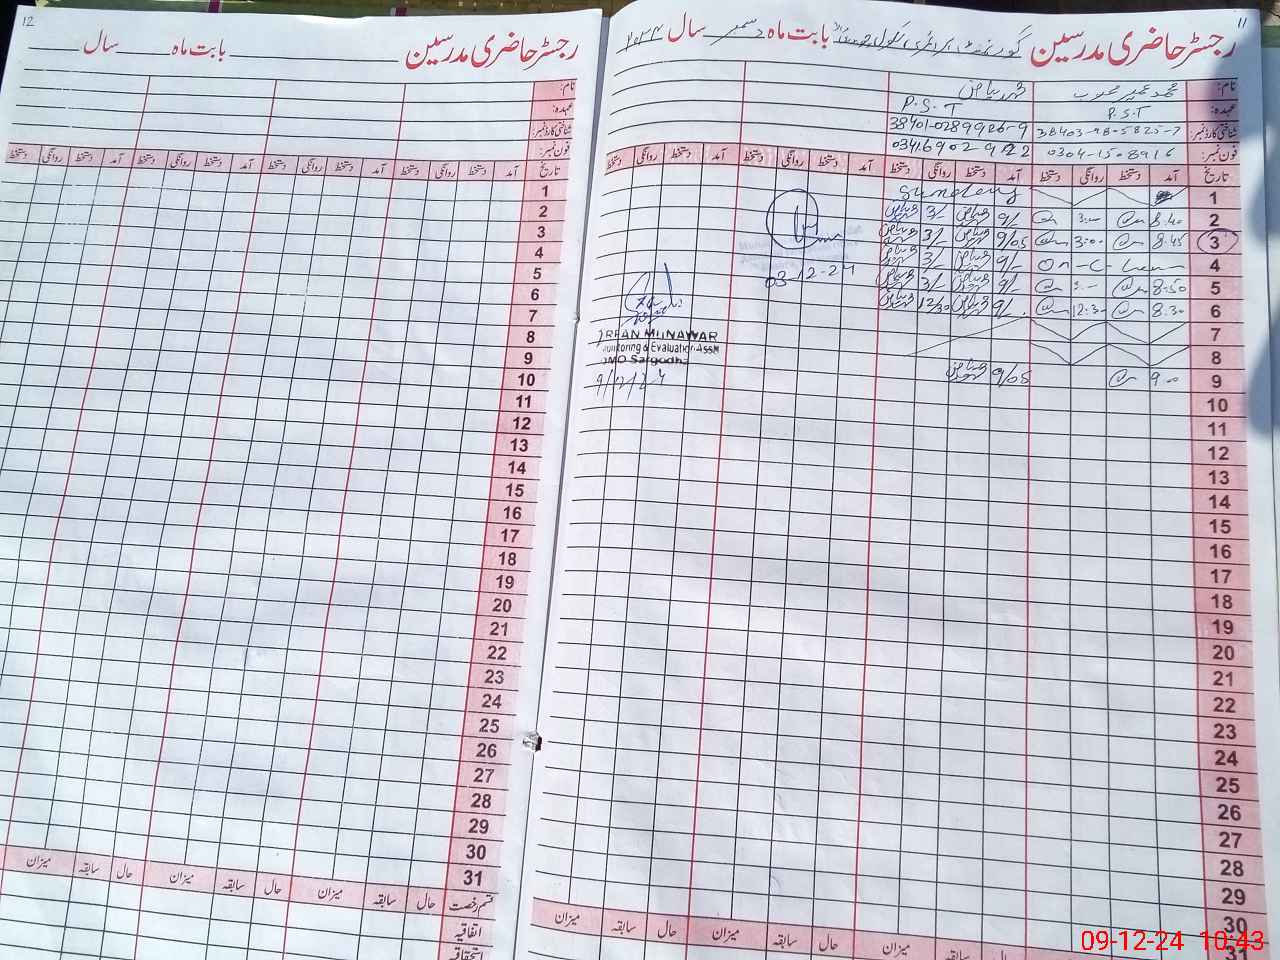 11
رجسٹر حاضری مدرسین گورنمنٹ پرائمری سکول بابت ماہ دسمبر سال ۲۰۲۴
نام: محمد عمیر محبوب
عہدہ: P.S.T P.S.T
شناختی کارڈ نمبر: 38401-0289926-9
فون نمبر: 0304-1508916 03416902922
تاریخ آمد دستخط روانگی دستخط آمد دستخط روانگی دستخط آمد دستخط روانگی دستخط آمد دستخط روانگی دستخط
1 Sunday
2 8:40 3:00 9/- 3/-
3 8:45 3:00 9/05 3/-
4 On-C-Leave 9/- 3/-
5 8:50 9/- 3/-
6 8:30 12:30 9/- 12/30
7
8
9 9:00 9/05
10
11
12
13
14
15
16
17
18
19
20
21
22
23
24
25
26
27
28
29
30
31
03-12-24
IRFAN MUNAWAR
Monitoring & Evaluation Asstt
DMO Sargodha
9/12/24
حال سابقہ میزان حال سابقہ میزان
12
رجسٹر حاضری مدرسین بابت ماہ سال
نام:
عہدہ:
شناختی کارڈ نمبر:
فون نمبر:
تاریخ آمد دستخط روانگی دستخط آمد دستخط روانگی دستخط آمد دستخط روانگی دستخط آمد دستخط روانگی دستخط
1
2
3
4
5
6
7
8
9
10
11
12
13
14
15
16
17
18
19
20
21
22
23
24
25
26
27
28
29
30
31
قسم رخصت حال سابقہ میزان حال سابقہ میزان حال سابقہ میزان
اتفاقیہ
استحقاقیہ
09-12-24 10:43